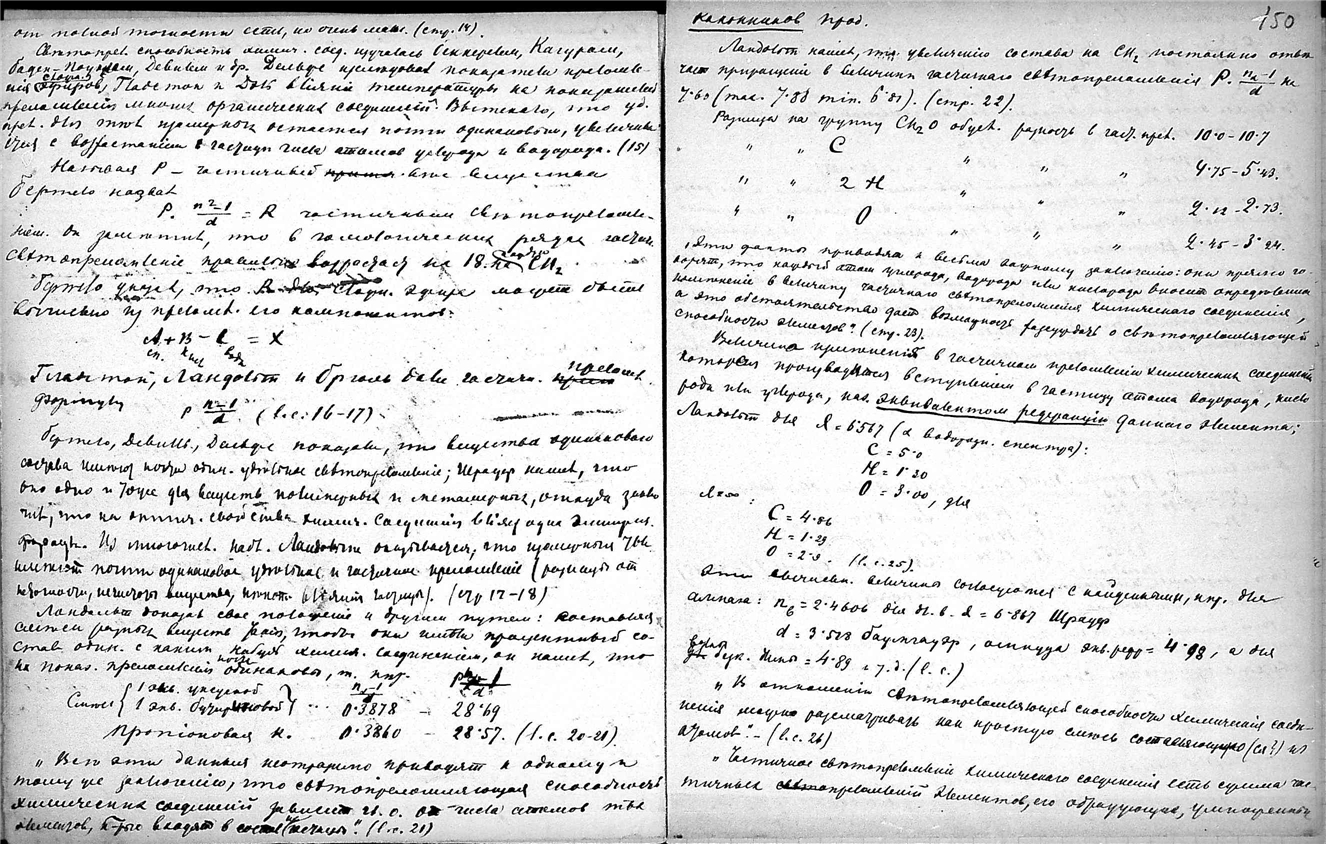 от полной точности есть, но очень мал. (стр. 14).
Свѣтопрел. способность химич. соед. изучалась Беккерелем, Кагуром,
Девилем и др. Дельфс изслѣдовал показатели преломле-
ния эфиров, Гладстон и Дэль влияние температуры на показатели
преломления многих органических соединений. Вытекало, что уд.
прел. для этих изомерных остается почти одинаковым, увеличива-
ется с возрастанием в частице числа атомов углерода и водорода. (15)
Называя P – частичный вес вещества
Бертело назвал
P. n²-1/d = R частичным свѣтопреломле-
нием. Он заметил, что в гомологических рядах частич.
свѣтопреломление возрастает на 18. на CH₂
Бертело указал, что эфира может быть
вычислено из преломл. его компонентов:
A + B – C = X
сп. кисл. вода
Гладстон, Ландольт и Брюль дали частичн. преломл.
формулу
P n-1/d. (l.c. 16-17).
Бертело, Девилль, Дельфс показали, что вещества одинакового
состава имеют почти один. удѣльное свѣтопреломление; Шрауф нашел, что
оно одно и тоже для веществ полимерных и метамерных, откуда заклю-
чил, что на оптич. свойства химич. соединений влияет одна эмпирич.
формула. Из многочисл. набл. Ландольта оказывается, что изомерные тѣла
имеют почти одинаковое удѣльное и частичное преломление (разницы от
(стр 17–18)
Ландольт доказал свое положение и другим путем: составляя
смеси разных веществ так, чтобы они имели процентный со-
став один. с каким нибудь химич. соединением, он нашел, что
их показ. преломления почти одинаковы, т. напр.
n-1/d P n-1/d
Смесь { 1 экв. уксусной
1 экв. бутириновой } ... 0.3878 – 28.69
Пропіоновая к. 0.3860 – 28.57. (l.c. 20-21).
„ Все эти данныя неотразимо приводят к одному и
тому же заключению, что свѣтопреломляющая способность
химических соединений зависит гл. о. от числа атомов тѣх
элементов, к-рые входят в состав частицы“. (l.c. 21)
Канонников прод. 150
Ландольт нашел, что увеличению состава на CH₂ постоянно отвѣ-
чает приращение в величине частичного свѣтопреломления P. n-1/d на
7.60 (max. 7.88 min. 6.81). (стр. 22).
Разница на группу CH₂O обусл. разность в част. прел. 10.0–10.7
„ „ C „ „ „ 4.75–5.43.
„ „ 2 H „ „ „ 2.12–2.73.
„ „ O „ „ „ 2.45–3.24.
„Эти факты приводят к весьма важному заключению: они прямо го-
ворят, что каждый атом углерода, водорода или кислорода вносит определенныя
изменения в величину частичного свѣтопреломления химического соединения,
а это обстоятельство дает возможность разсуждать о свѣтопреломляющей
способности элементов“. (стр. 23).
Величина приложений в частичном преломлении химических соединений
которыя производятся вступлением в частицу атома водорода, кисло-
рода или углерода, наз. эквивалентом рефракции данного элемента;
Ландольт для λ = 6567 (α водородн. спектра):
C = 5.0
H = 1.30
O = 3.00, для
λ=∞:
C = 4.86
H = 1.29
O = 2.9 (l.c. 25).
Эти вычислен. величины согласуются с найденными, напр. для
алмаза: n = 2.4606 для λ = 6.867 Шрауф
d = 3.518 Баумгауер, откуда экв. рефр = 4.98, а для
= 4.89 и т.д. (l.c.)
„ В отношении свѣтопреломляющей способности химическия соеди-
нения можно разсматривать как простую смесь составляющую (ся?) из
атомов“. – (l.c. 26)
„ Частичное свѣтопреломление химического соединения есть сумма час-
тичных свѣтопреломлений элементов, его образующих, умноженных